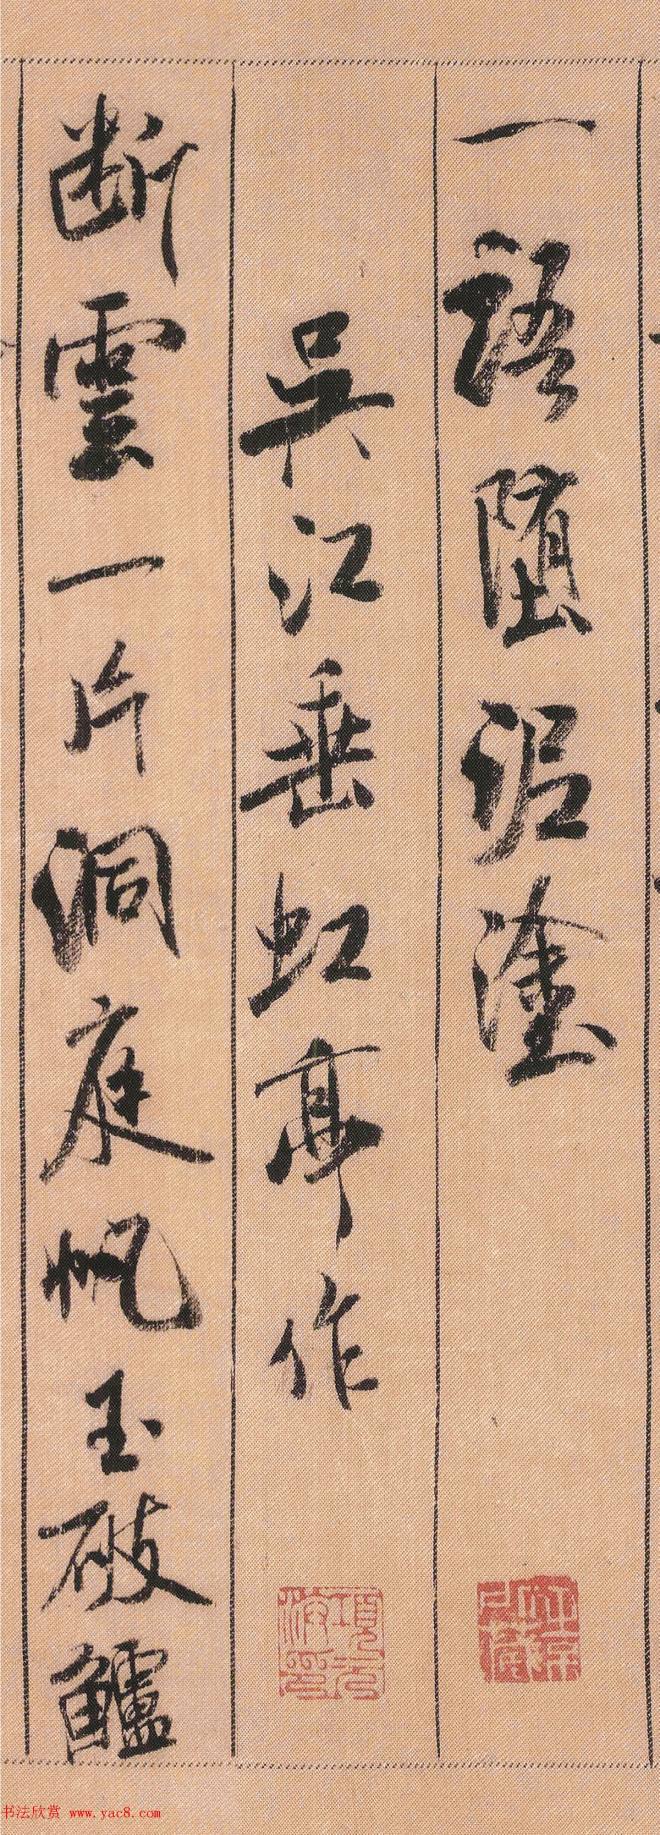 一語墮泥塗
吳江垂虹亭作
断雲一片洞庭帆玉破鱸
书法欣赏 www.yac8.com